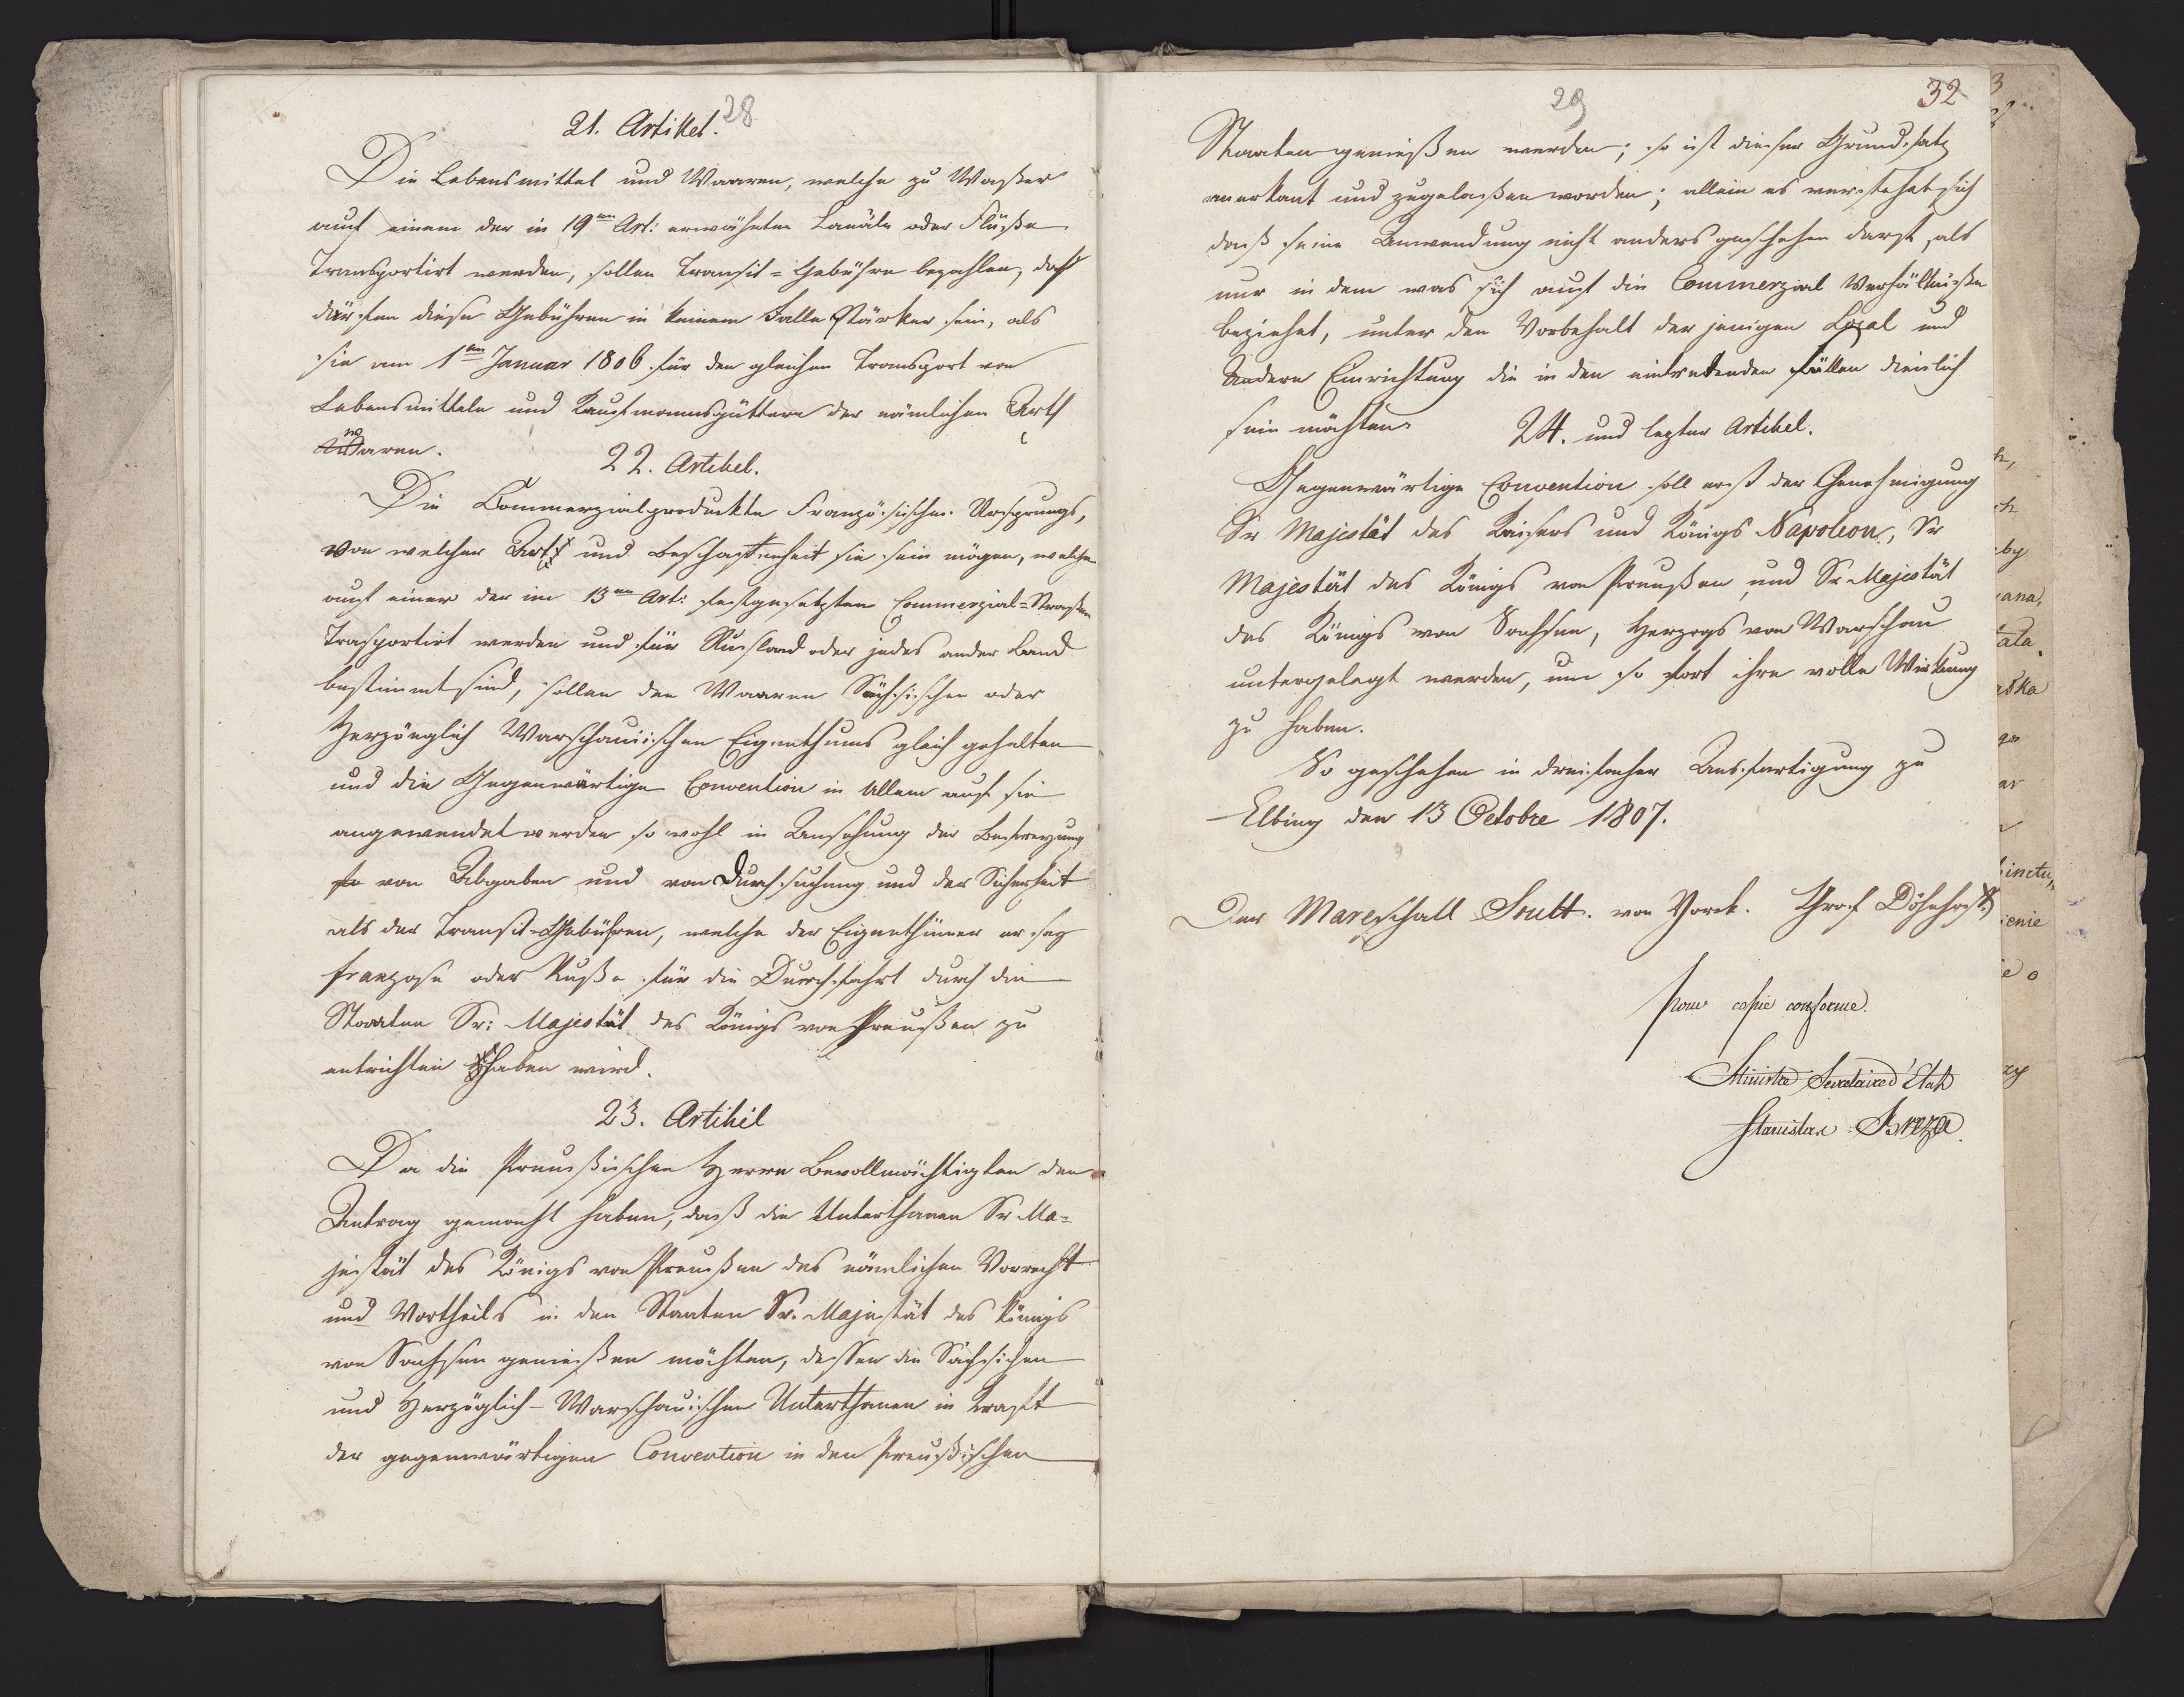 28
21. Artikel.
Die Lebensmittel und Waaren, welche zu Waßer
auf einem der in 19ten Art: erwähnten Canäle oder Flüße
Transportirt werden, sollen Transit-Gebühre bezahlen, doch
dürfen diese Gebühren in keinem Falle stärker sein, als
sie am 1ten Januar 1806 für den gleichen Transport von
Lebensmitteln und Kaufmannsgüttern der nämlichen Arth
waren.
22. Artikel.
Die Commerzialprodukte Französischen Ursprungs,
von welcher Art und Beschaffenheit sie sein mögen, welche
auf einer der im 13ten Art: festgesetzten Commerzial-Straßen
Trasportirt werden und für Rusland oder jedes ander Land
bestimmt sind, sollen den Waaren Sächsischen oder
Herzöglich Warschauischen Eigenthums gleich gehalten
und die Gegenwärtige Convention in Allem auf sie
angewendet werden so wohl in Ansehung der Befreyung
von Abgaben und von Durchsuchung und der Sicherheit
als der Transit-Gebühren, welche der Eigenthümer er sey
Franzose oder Ruße für die Durchfahrt durch die
Staaten Sr: Majestät des Königs von Preußen zu
entrichten haben wird.
23. Artikel
Da die Preußischen Herrn Bevollmächtigten den
Antrag gemacht haben, daß die Unterthanen Sr Ma-
jestät des Königs von Preußen des nämlichen Vorrecht
und Vortheils in den Staaten Sr. Majestät des Königs
von Sachsen genießen möchten, dessen die Sächsichen
und Herzöglich-Warschauischen Unterthanen in Kraft
der gegenwärtigen Convention in den Preußischen
29
32
Staaten genießen werden; so ist dieser Grundsatz
anerkant und zugelaßen worden; allein es verstehet sich
daß seine Anwendung nicht anders geschehen darf, als
nur in dem was sich auf die Commerzial Verhältniße
beziehet, unter dem Vorbehalt der jenigen Local und
Andern Einrichtung die in den eintretenden Fällen dienlich
sein möchten.
24. und lezter Artikel.
Gegenwärtige Convention soll erst der Genehmigung
Sr Majestät des Kaisers und Königs Napoleon, Sr
Majestät des Königs von Preußen und Sr Majestät
des Königs von Sachsen, Herzogs von Warschau
untergelegt werden, um so fort ihre volle Wirkung
zu haben.
So geschehen in dreifacher Ausfertigung zu
Elbing den 13 Octobre 1807.
Der Mareschall Soult. von Yorck. Graf Döhnhoff
pour copie conforme.
Ministre Secretaire d'Etat
Stanislas Breza.